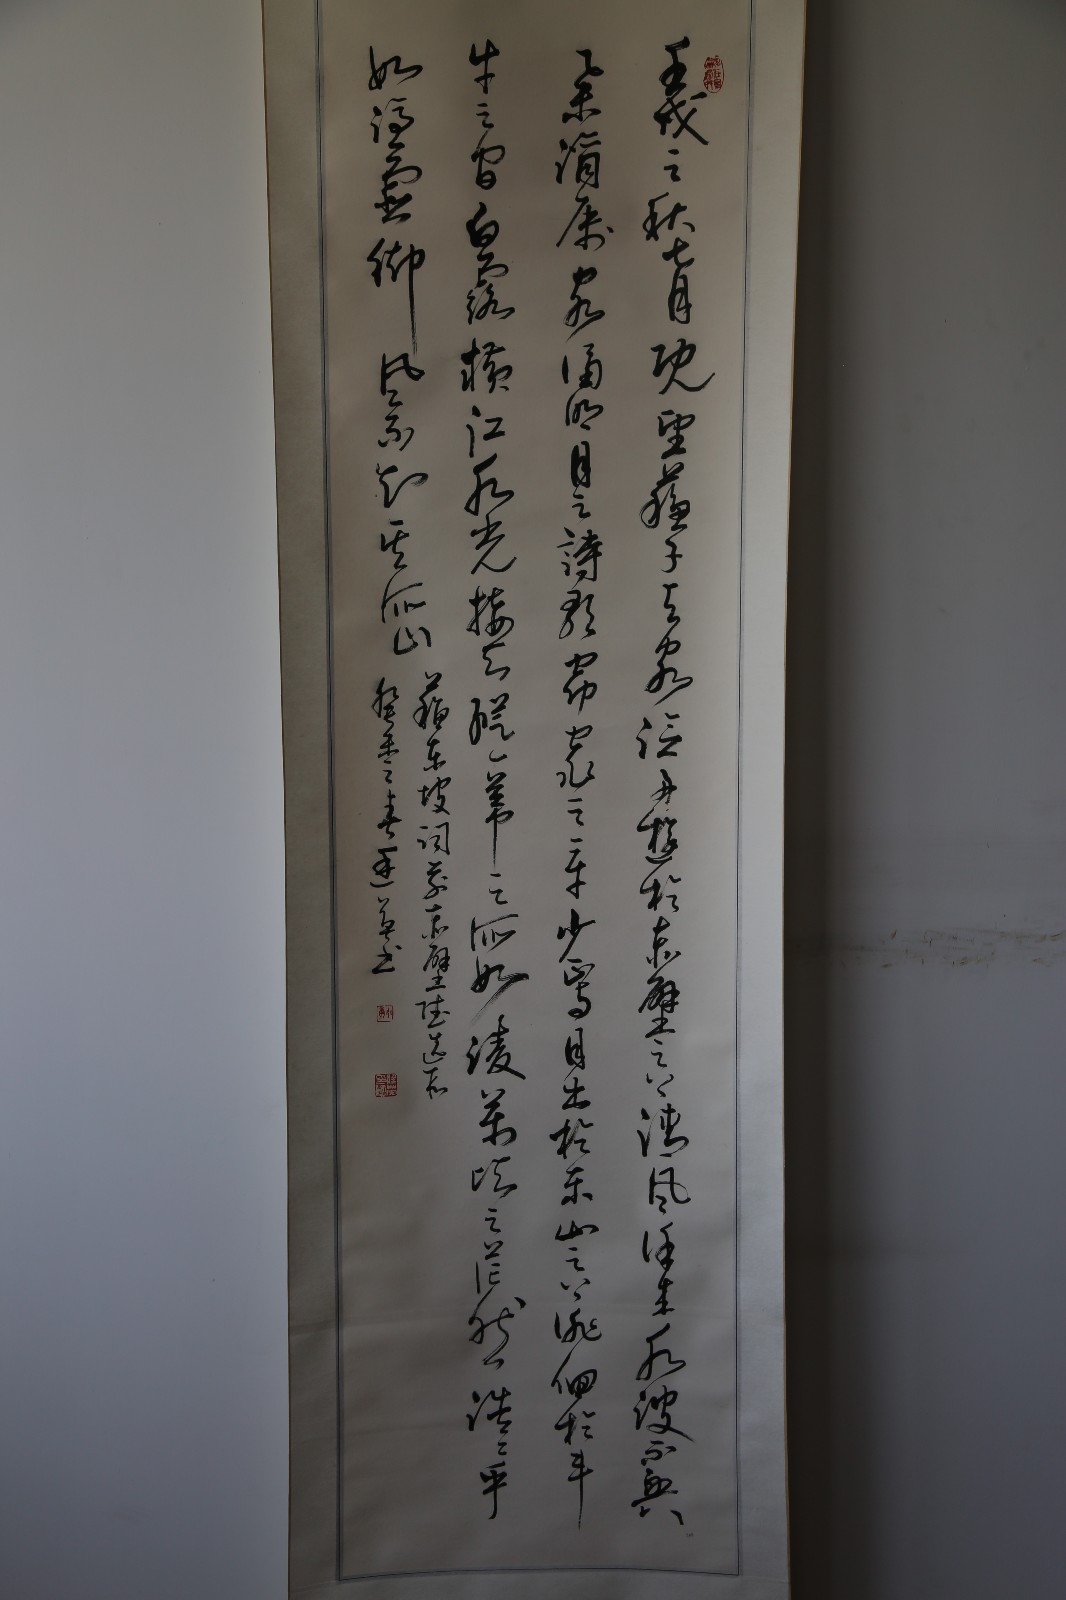 壬戌之秋七月既望蘇子與客泛舟遊於赤壁之下清風徐來水波不興
舉酒屬客誦明月之詩歌窈窕之章少焉月出於東山之上徘徊於斗
牛之間白露橫江水光接天縱一葦之所如凌萬頃之茫然浩浩乎
如馮虛御風而不知其所止
蘇東坡詞前赤壁賦
癸之春書